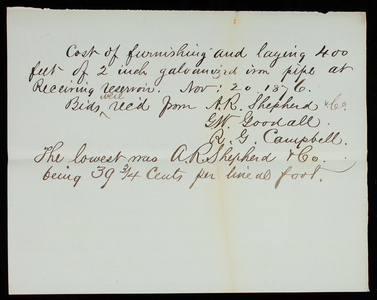 Cost of furnishing and laying 400
feet of 2 inch galvanized iron pipe at
Receiving reservoir. Nov: 20. 1876.
Bids were rec'd from A.R. Shepherd & Co.
G.W. Goodall.
R. G. Campbell.
The lowest was A.R Shepherd & Co.
being 39 3/4 Cents per lineal foot.